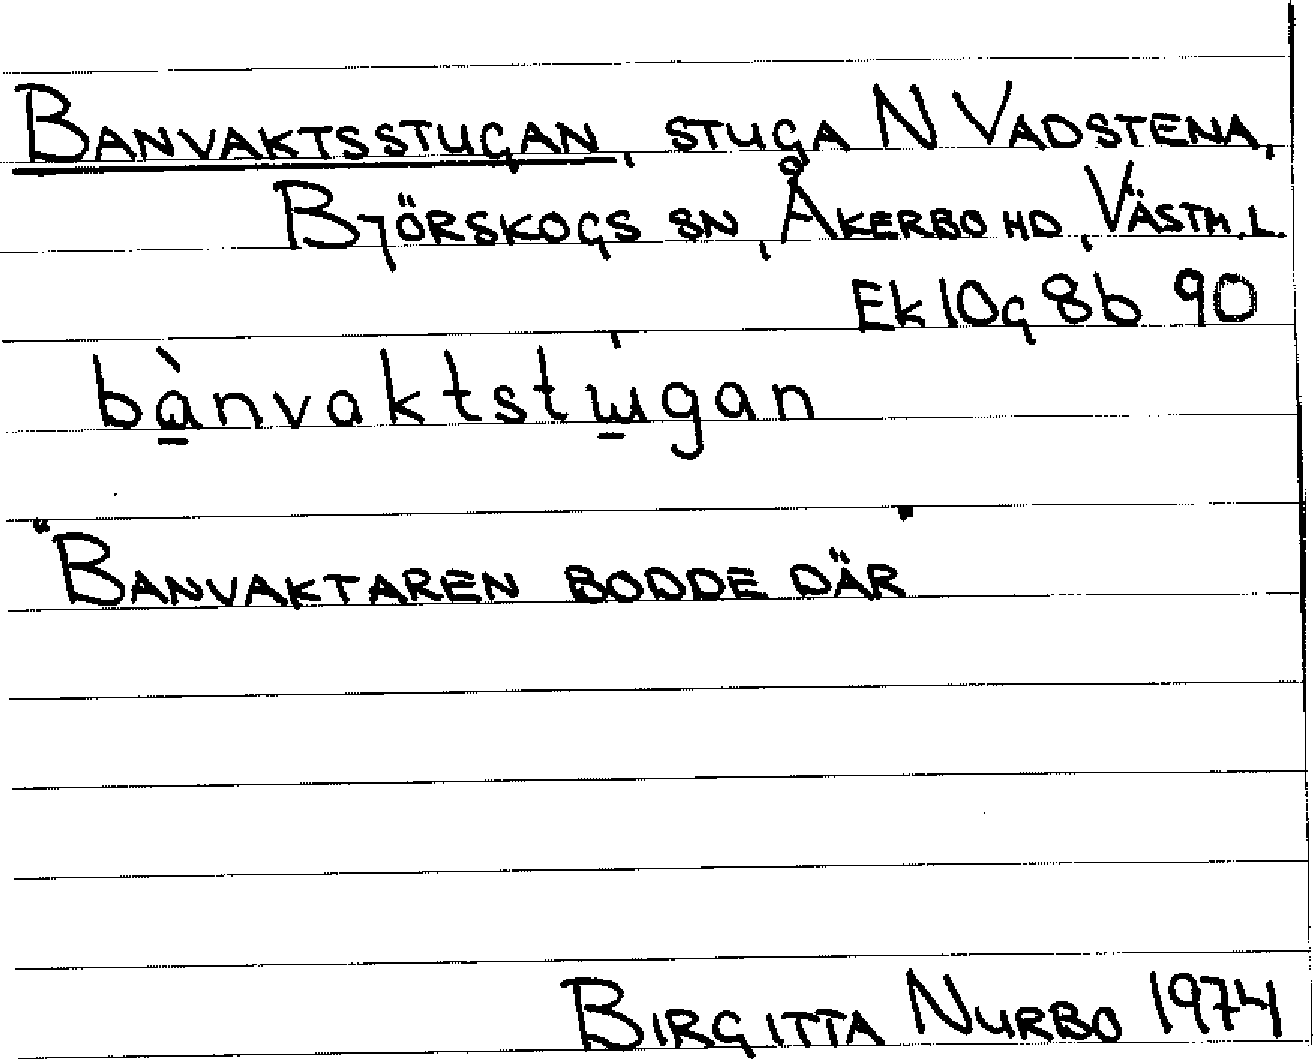 BANVAKTSSTUGAN, STUGA N VADSTENA,
BJÖRSKOGS SN, ÅKERBO HD, VÄSTM.L.
Ek 10g 8b 90
bànvaktstɯ́gan
"BANVAKTAREN BODDE DÄR"
BIRGITTA NURBO 1974